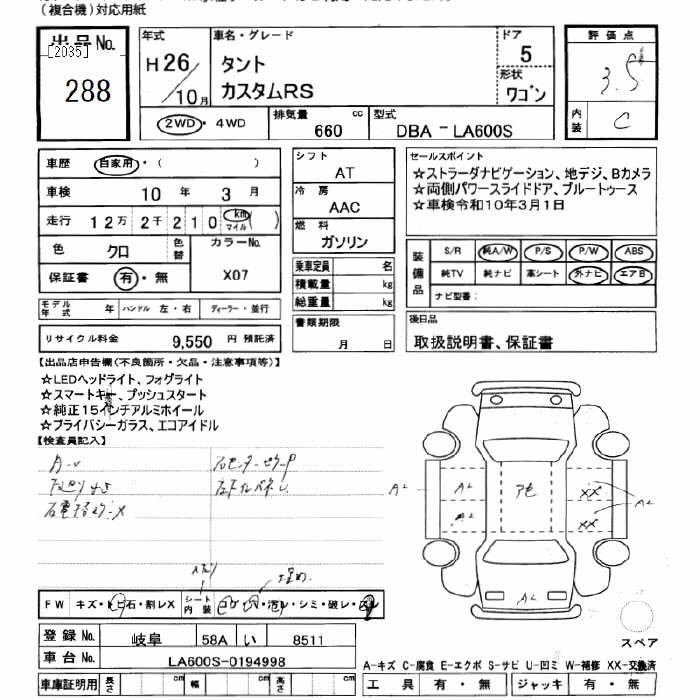 （複合機）対応用紙
出品No.
[2035]
288
年式
H 26/10月
車名・グレード
タント
カスタムRS
ドア
5
形状
ワゴン
評価点
3.5
内装
C
2WD・4WD
排気量
660 cc
型式
DBA－LA600S
車歴
自家用・（ ）
車検
10 年 3 月
走行
12万 2千 210 km マイル（ ）
色
クロ
色替
カラーNo.
X07
保証書
有・無
モデル年式 年
ハンドル 左・右
ディーラー・並行
リサイクル料金 9,550 円 預託済
シフト
AT
冷房
AAC
燃料
ガソリン
乗車定員 名
積載量 kg
総重量 kg
書類期限
月 日
セールスポイント
☆ストラーダナビゲーション、地デジ、Bカメラ
☆両側パワースライドドア、ブルートゥース
☆車検令和10年3月1日
装備品
S/R 純A/W P/S P/W ABS
純TV 純ナビ 革シート 外ナビ エアB
ナビ型番：
後日品
取扱説明書、保証書
【出品店申告欄(不良箇所・欠品・注意事項等)】
☆LEDヘッドライト、フォグライト
☆スマートキー、プッシュスタート
☆純正15インチアルミホイール
☆プライバシーガラス、エコアイドル
【検査員記入】
A2
A2
A2
XX
XX
A2
A2
FW キズ・トビ石・割レX
シート内装
コゲ・穴・汚レ・シミ・破レ・スレ
登録No. 岐阜 58A い 8511
車台No. LA600S-0194998
車庫証明用 長さ cm 幅 cm 高さ cm
スペア
A－キズ C－腐食 E－エクボ S－サビ U－凹ミ W－補修 XX－交換済
工具 有・無 ジャッキ 有・無